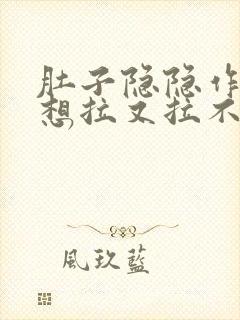 肚子隐隐作
想拉又拉不
風玖藍